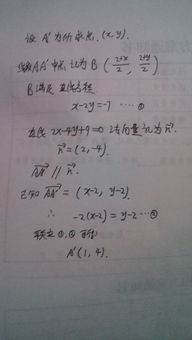 设 A' 为所求点. (x, y).
线段AA'中点 记为 B (2+x/2, 2+y/2)
B 满足 直线方程
x-2y=-7 ……①
直线 2x-4y+9=0 法向量记为 n⃗.
n⃗=(2,-4).
AA'⃗ ∥ n⃗.
已知 AA'⃗ = (x-2, y-2)
∴ -2(x-2) = y-2 …②
联立①,②可得
A'(1, 4).